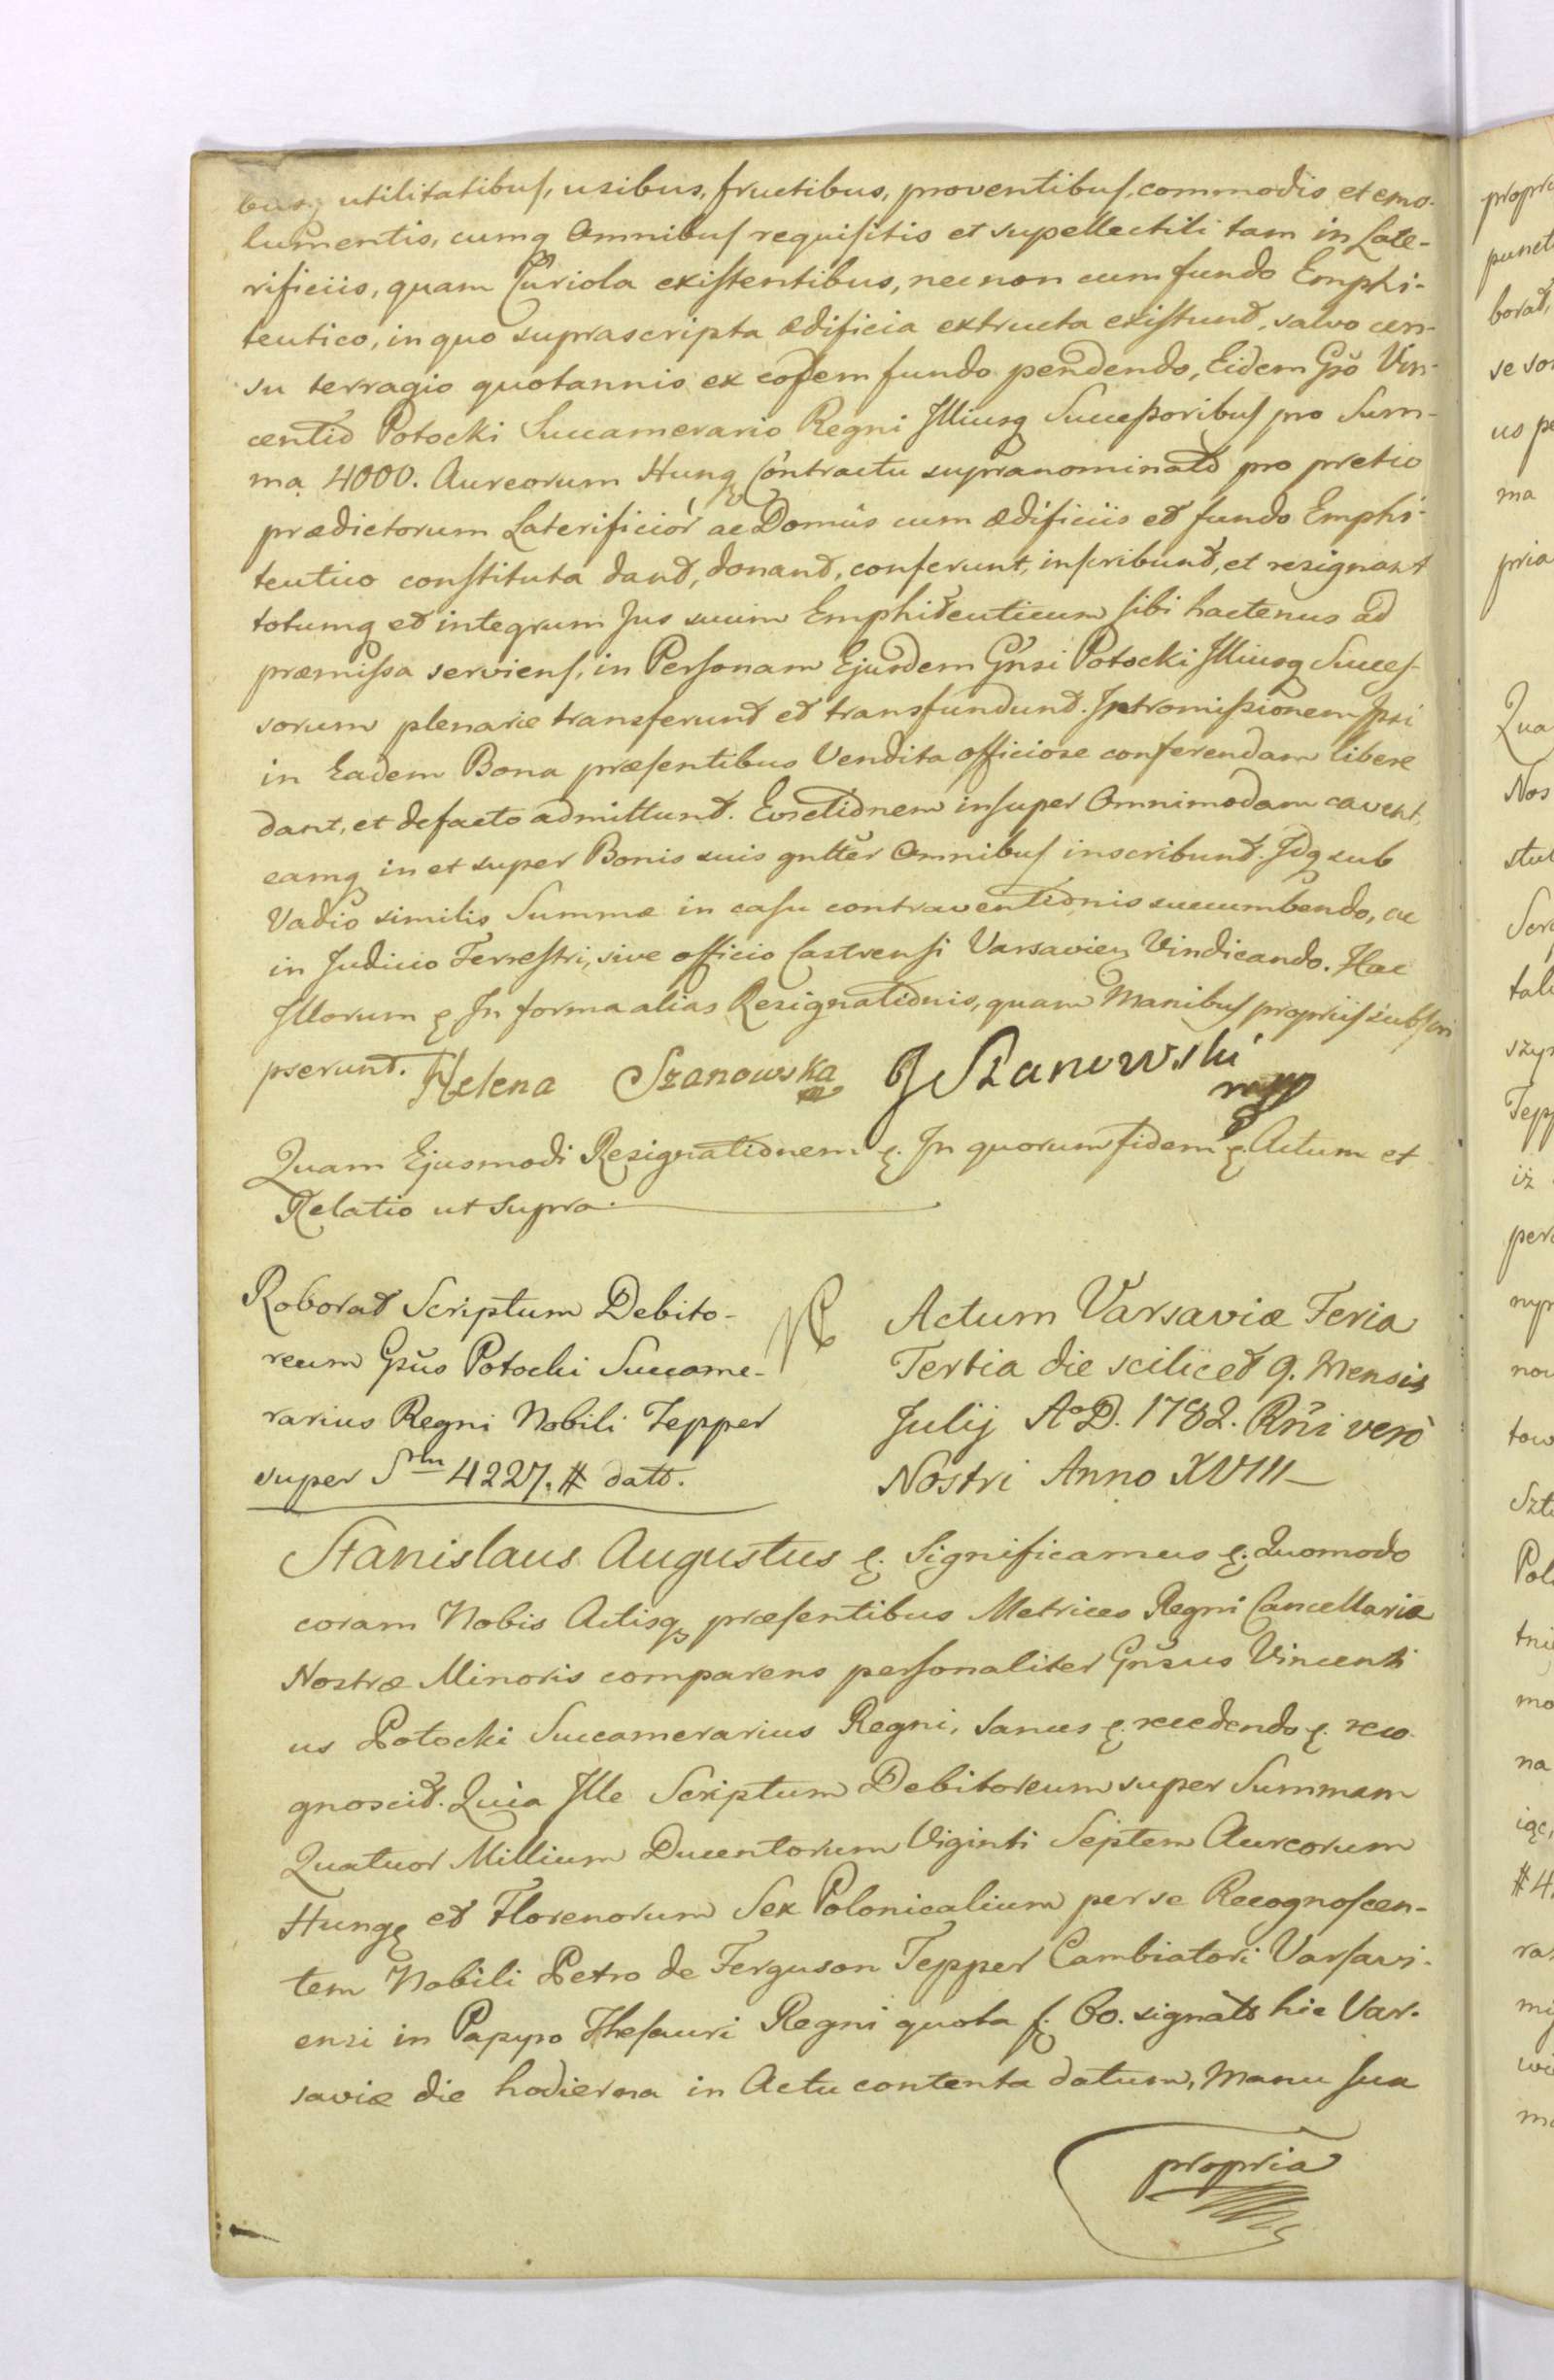 busq utilitatibus, usibus, fructibus, proventibus, commodis et emo-
lumentis, cumq Omnibus requisitis et supellectili tam in Late-
rificiis, quam Curiola existentibus, necnon cum fundo Emphi-
teutico, in quo suprascripta ædificia extructa existunt, salvo cen-
su terragio quotannis ex eodem fundo pendendo, Eidem Gso Vin-
centio Potocki Succamerario Regni Illiusq Successoribus pro Sum-
ma 4000. Aureorum Hung Contractu supranominato pro pretio
prædictorum Laterificior ac Domus cum ædificiis et fundo Emphi-
teutico constituta dant, donant, conferunt, inscribunt, et resignant
totumq et integrum Jus suum Emphiteuticum sibi hactenus ad
præmissa serviens, in Personam Ejusdem Gnsi Potocki Illiusq Succes-
sorum plenarie transferunt et transfundunt. Intromissionem Ipsi
in Eadem Bona præsentibus Vendita officiose conferendam libere
dant, et defacto admittunt. Evictionem insuper Omnimodam cavent,
eamq in et super Bonis suis gntter Omnibus inscribunt. Idq sub
Vadio similis Summæ in casu contraventionis succumbendo, ac
in Judicio Terrestri, sive officio Castrensi Varsavien Vindicando. Hac
Illorum ꝛ In forma alias Resignationis, quam Manibus propriis subscri
pserunt. Helena Szanowska J Szanowski
mpp
Quam Ejusmodi Resignationem ꝛ. In quorum fidem ꝛ. Actum et
Relatio ut supra.
Roborat Scriptum Debito-
reum Gsus Potocki Succame-
rarius Regni Nobili Tepper
super Sm 4227. # dato.
Actum Varsaviæ Feria
Tertia die scilicet 9. Mensis
Julij Ao D. 1782. Rni vero
Nostri Anno XVIII
Stanislaus Augustus ꝛ. Significamus ꝛ. Quomodo
coram Nobis Actisq præsentibus Metrices Regni Cancellariæ
Nostræ Minoris comparens personaliter Gnsus Vincenti
us Potocki Succamerarius Regni, Sanus ꝛ. recedendo ꝛ. reco-
gnoscit. Quia Ille Scriptum Debitoreum super Summam
Quatuor Millium Ducentorum Viginti Septem Aureorum
Hung et Florenorum Sex Polonicalium per se Recognoscen-
tem Nobili Petro de Ferguson Tepper Cambiatori Varsavi-
ensi in Papyro Thesauri Regni quota f. 60. signato hic Var-
saviæ die hodierna in Actu contenta datum, Manu sua
propria